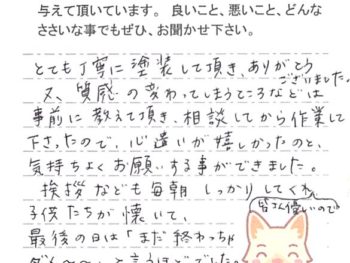 与えて頂いています。 良いこと、悪いこと、どんな
ささいな事でもぜひ、お聞かせ下さい。
とても丁寧に塗装して頂き、ありがとう
ございました。
又、質感の変わってしまうところなどは
事前に教えて頂き、相談してから作業して
下さったので、心遣いが嬉しかったのと、
気持ちよくお願いする事ができました。
挨拶なども毎朝しっかりしてくれ
皆さん優しいので
子供たちが懐いて、
最後の日は「まだ終わっちゃ
ダメ〜〜」と言うほどでした。